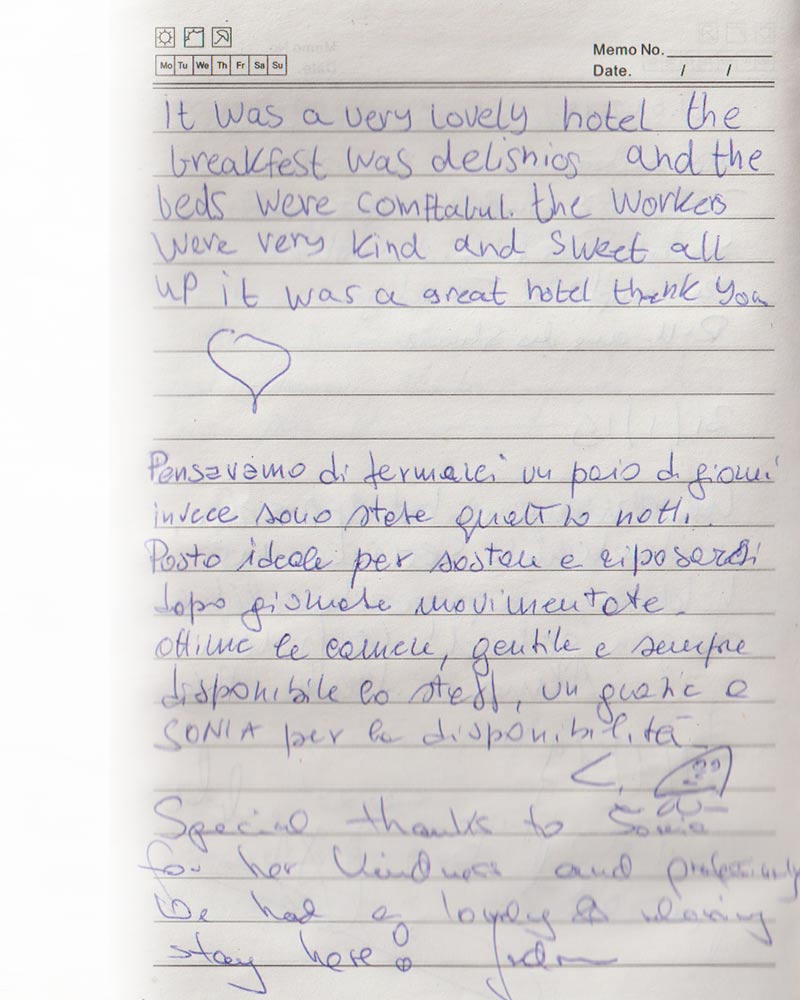 Mo Tu We Th Fr Sa Su
Memo No.
Date. / /
It was a very lovely hotel the
breakfest was delishios and the
beds were comftabul. the workers
were very kind and sweet all
up it was a great hotel thank you
Pensavamo di fermarci un paio di giorni
invece sono state quattro notti.
Posto ideale per sostare e riposarsi
dopo giornate movimentate.
Ottime le camere, gentile e sempre
disponibile lo staff, un grazie a
SONIA per la disponibilità
Special thanks to Sonia
for her kindness and
We had a lovely & relaxing
stay here!